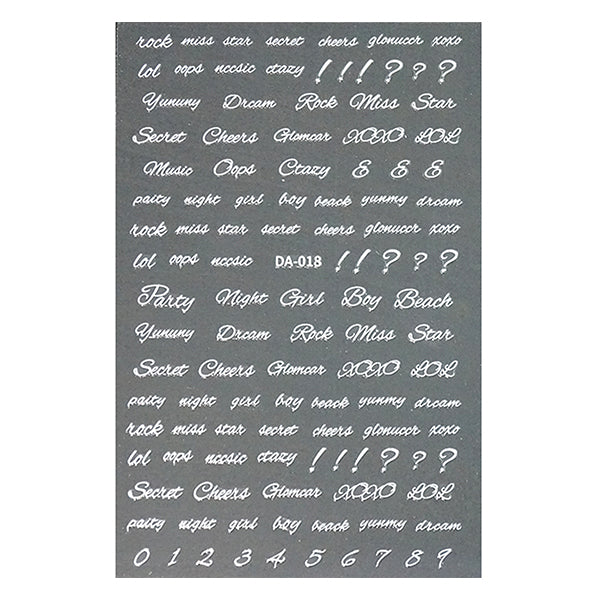 rock miss star secret cheers glonuccr xoxo
lol oops nccsic ctazy ! ! ! ? ? ?
Yununy Drcam Rock Miss Star
Secret Cheers Glomcar XOXO LOL
Music Oops Ctazy & & &
paity night girl boy beack yunmy drcam
rock miss star secret cheers glonuccr xoxo
lol oops nccsic DA-018 ! ! ? ? ?
Party Night Girl Boy Beach
Yununy Drcam Rock Miss Star
Secret Cheers Glomcar XOXO LOL
paity night girl boy beack yunmy drcam
rock miss star secret cheers glonuccr xoxo
lol oops nccsic ctazy ! ! ! ? ? ?
Secret Cheers Glomcar XOXO LOL
paity night girl boy beack yunmy drcam
0 1 2 3 4 5 6 7 8 9